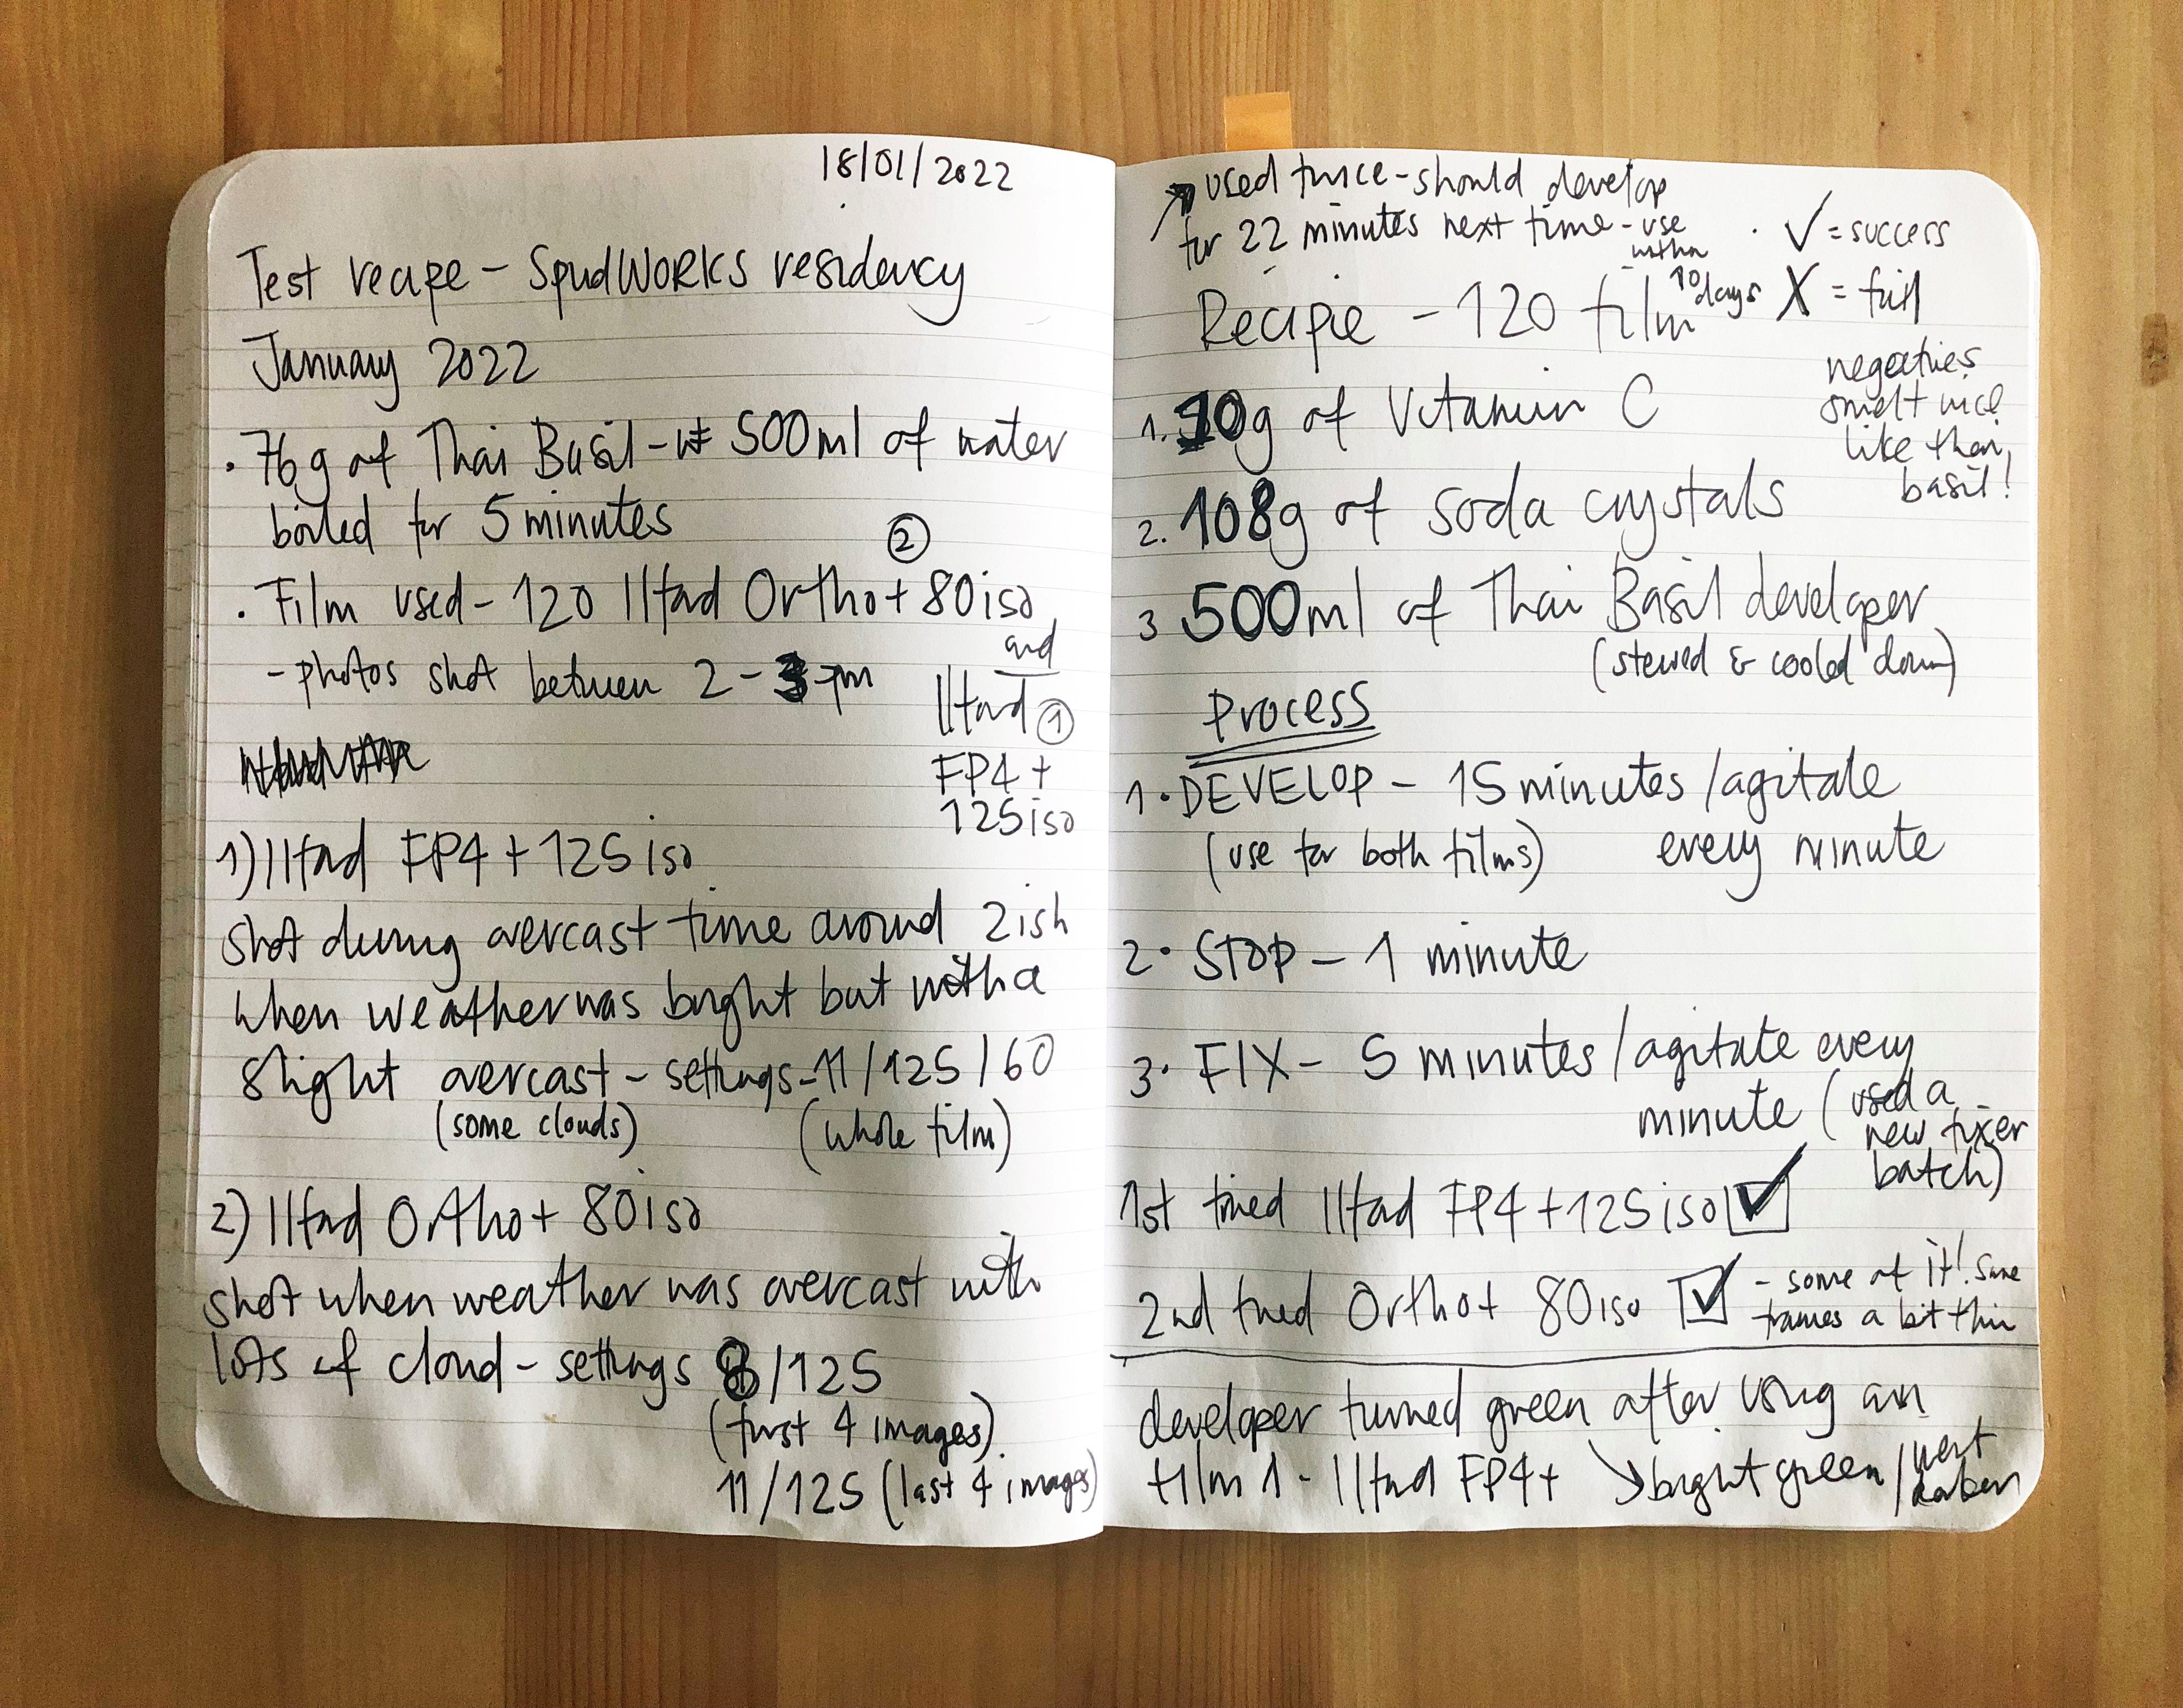 18/01/2022
Test recipe - SpudWORKS residency
January 2022
• 76g of Thai Basil - 500ml of water
boiled for 5 minutes
②
• Film used - 120 Ilford Ortho+ 80iso
and
- photos shot between 2 - 3 pm
Ilford ①
FP4 +
125iso
1) Ilford FP4 + 125 iso
shot during overcast time around 2ish
when weather was bright but with a
slight overcast - settings - 11/125/60
(some clouds) (whole film)
2) Ilford Ortho+ 80iso
shot when weather was overcast with
lots of cloud - settings 8/125
(first 4 images)
11/125 (last 4 images)
used twice - should develop
for 22 minutes next time - use
within
10 days
✓ = success
X = fail
Recipie - 120 film
negatives
smelt nice
like thai
basil!
1. 10g of Vitamin C
2. 108g of soda crystals
3 500ml of Thai Basil developer
(stewed & cooled down)
Process
1. DEVELOP - 15 minutes / agitate
(use for both films) every minute
2. STOP - 1 minute
3. FIX - 5 minutes / agitate every
minute (used a
new fixer
batch)
1st tried Ilford FP4 + 125 iso ☑
2nd tried Ortho+ 80iso ☑ - some of it! Some
frames a bit thin
developer turned green after using on
film 1 - Ilford FP4+ ↘ bright green / went
darker